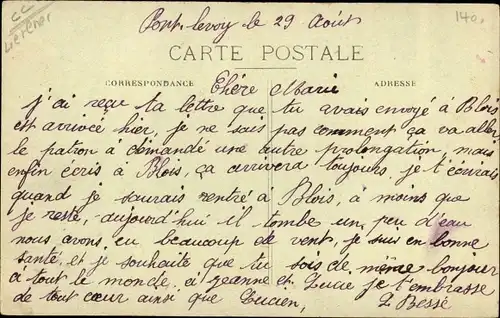 Pont levoy le 29 Août
140
CARTE POSTALE
CORRESPONDANCE
ADRESSE
Chère Marie
j'ai reçu ta lettre que tu avais envoyé à Blois
est arrivée hier, je ne sais pas comment ça va aller
le patron à demandé une autre prolongation, mais
enfin ecris à Blois, ça arrivera toujours, je t'écrirais
quand je saurais rentré à Blois, à moins que
je reste, aujourd'hui il tombe un peu d'eau
nous avons eu beaucoup de vent, je suis en bonne
santé et je souhaite que tu sois de même bonjour
à tout le monde, à Jeanne et Luce je t'embrasse
de tout cœur ainsi que Lucien,
Bessé